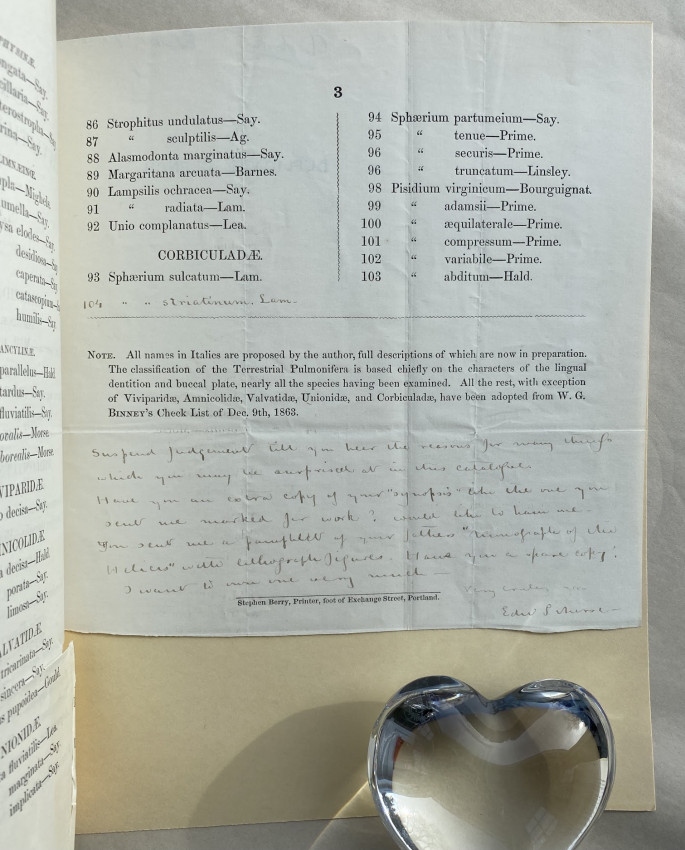 PHYSINÆ.
ongata—Say.
cillaria—Say.
terostropha—Say
rina—Say.
LIMNÆINÆ.
pla—Mighels.
umella—Say.
ysa elodes—Say
desidiosa—Say
caperata—Say
catascopium—
humilis—Say
ANCYLINÆ.
parallelus—Hald.
tardus—Say.
fluviatilis—Say.
ovalis—Morse.
borealis—Morse.
VIPARIDÆ.
o decisa—Say.
NICOLIDÆ.
a decisa—Hald.
porata—Say.
limosa—Say.
ALVATIDÆ.
tricarinata—Say.
sincera—Say.
s pupoidea—Gould.
NIONIDÆ.
a fluviatilis—Lea.
marginata—Say.
implicata—Say.
3
86 Strophitus undulatus—Say.
87 “ sculptilis—Ag.
88 Alasmodonta marginatus—Say.
89 Margaritana arcuata—Barnes.
90 Lampsilis ochracea—Say.
91 “ radiata—Lam.
92 Unio complanatus—Lea.
CORBICULADÆ.
93 Sphærium sulcatum—Lam.
104 “ “ striatinum. Lam.
94 Sphærium partumeium—Say.
95 “ tenue—Prime.
96 “ securis—Prime.
96 “ truncatum—Linsley.
98 Pisidium virginicum—Bourguignat.
99 “ adamsii—Prime.
100 “ æquilaterale—Prime.
101 “ compressum—Prime.
102 “ variabile—Prime.
103 “ abditum—Hald.
NOTE. All names in Italics are proposed by the author, full descriptions of which are now in preparation.
The classification of the Terrestrial Pulmonifera is based chiefly on the characters of the lingual
dentition and buccal plate, nearly all the species having been examined. All the rest, with exception
of Viviparidæ, Amnicolidæ, Valvatidæ, Unionidæ, and Corbiculadæ, have been adopted from W. G.
BINNEY'S Check List of Dec. 9th, 1863.
Suspend Judgement till you hear the reasons for many things
which you may be surprised at in this catalogue.
Have you an extra copy of your "synopsis" like the one you
sent me marked for work? would like to have one.
You sent me a pamphlet of your fathers "monograph of the
Helices" with lithograph figures. Have you a spare copy?
I want to own one very much—
Very truly yours
Edw S Morse—
Stephen Berry, Printer, foot of Exchange Street, Portland.